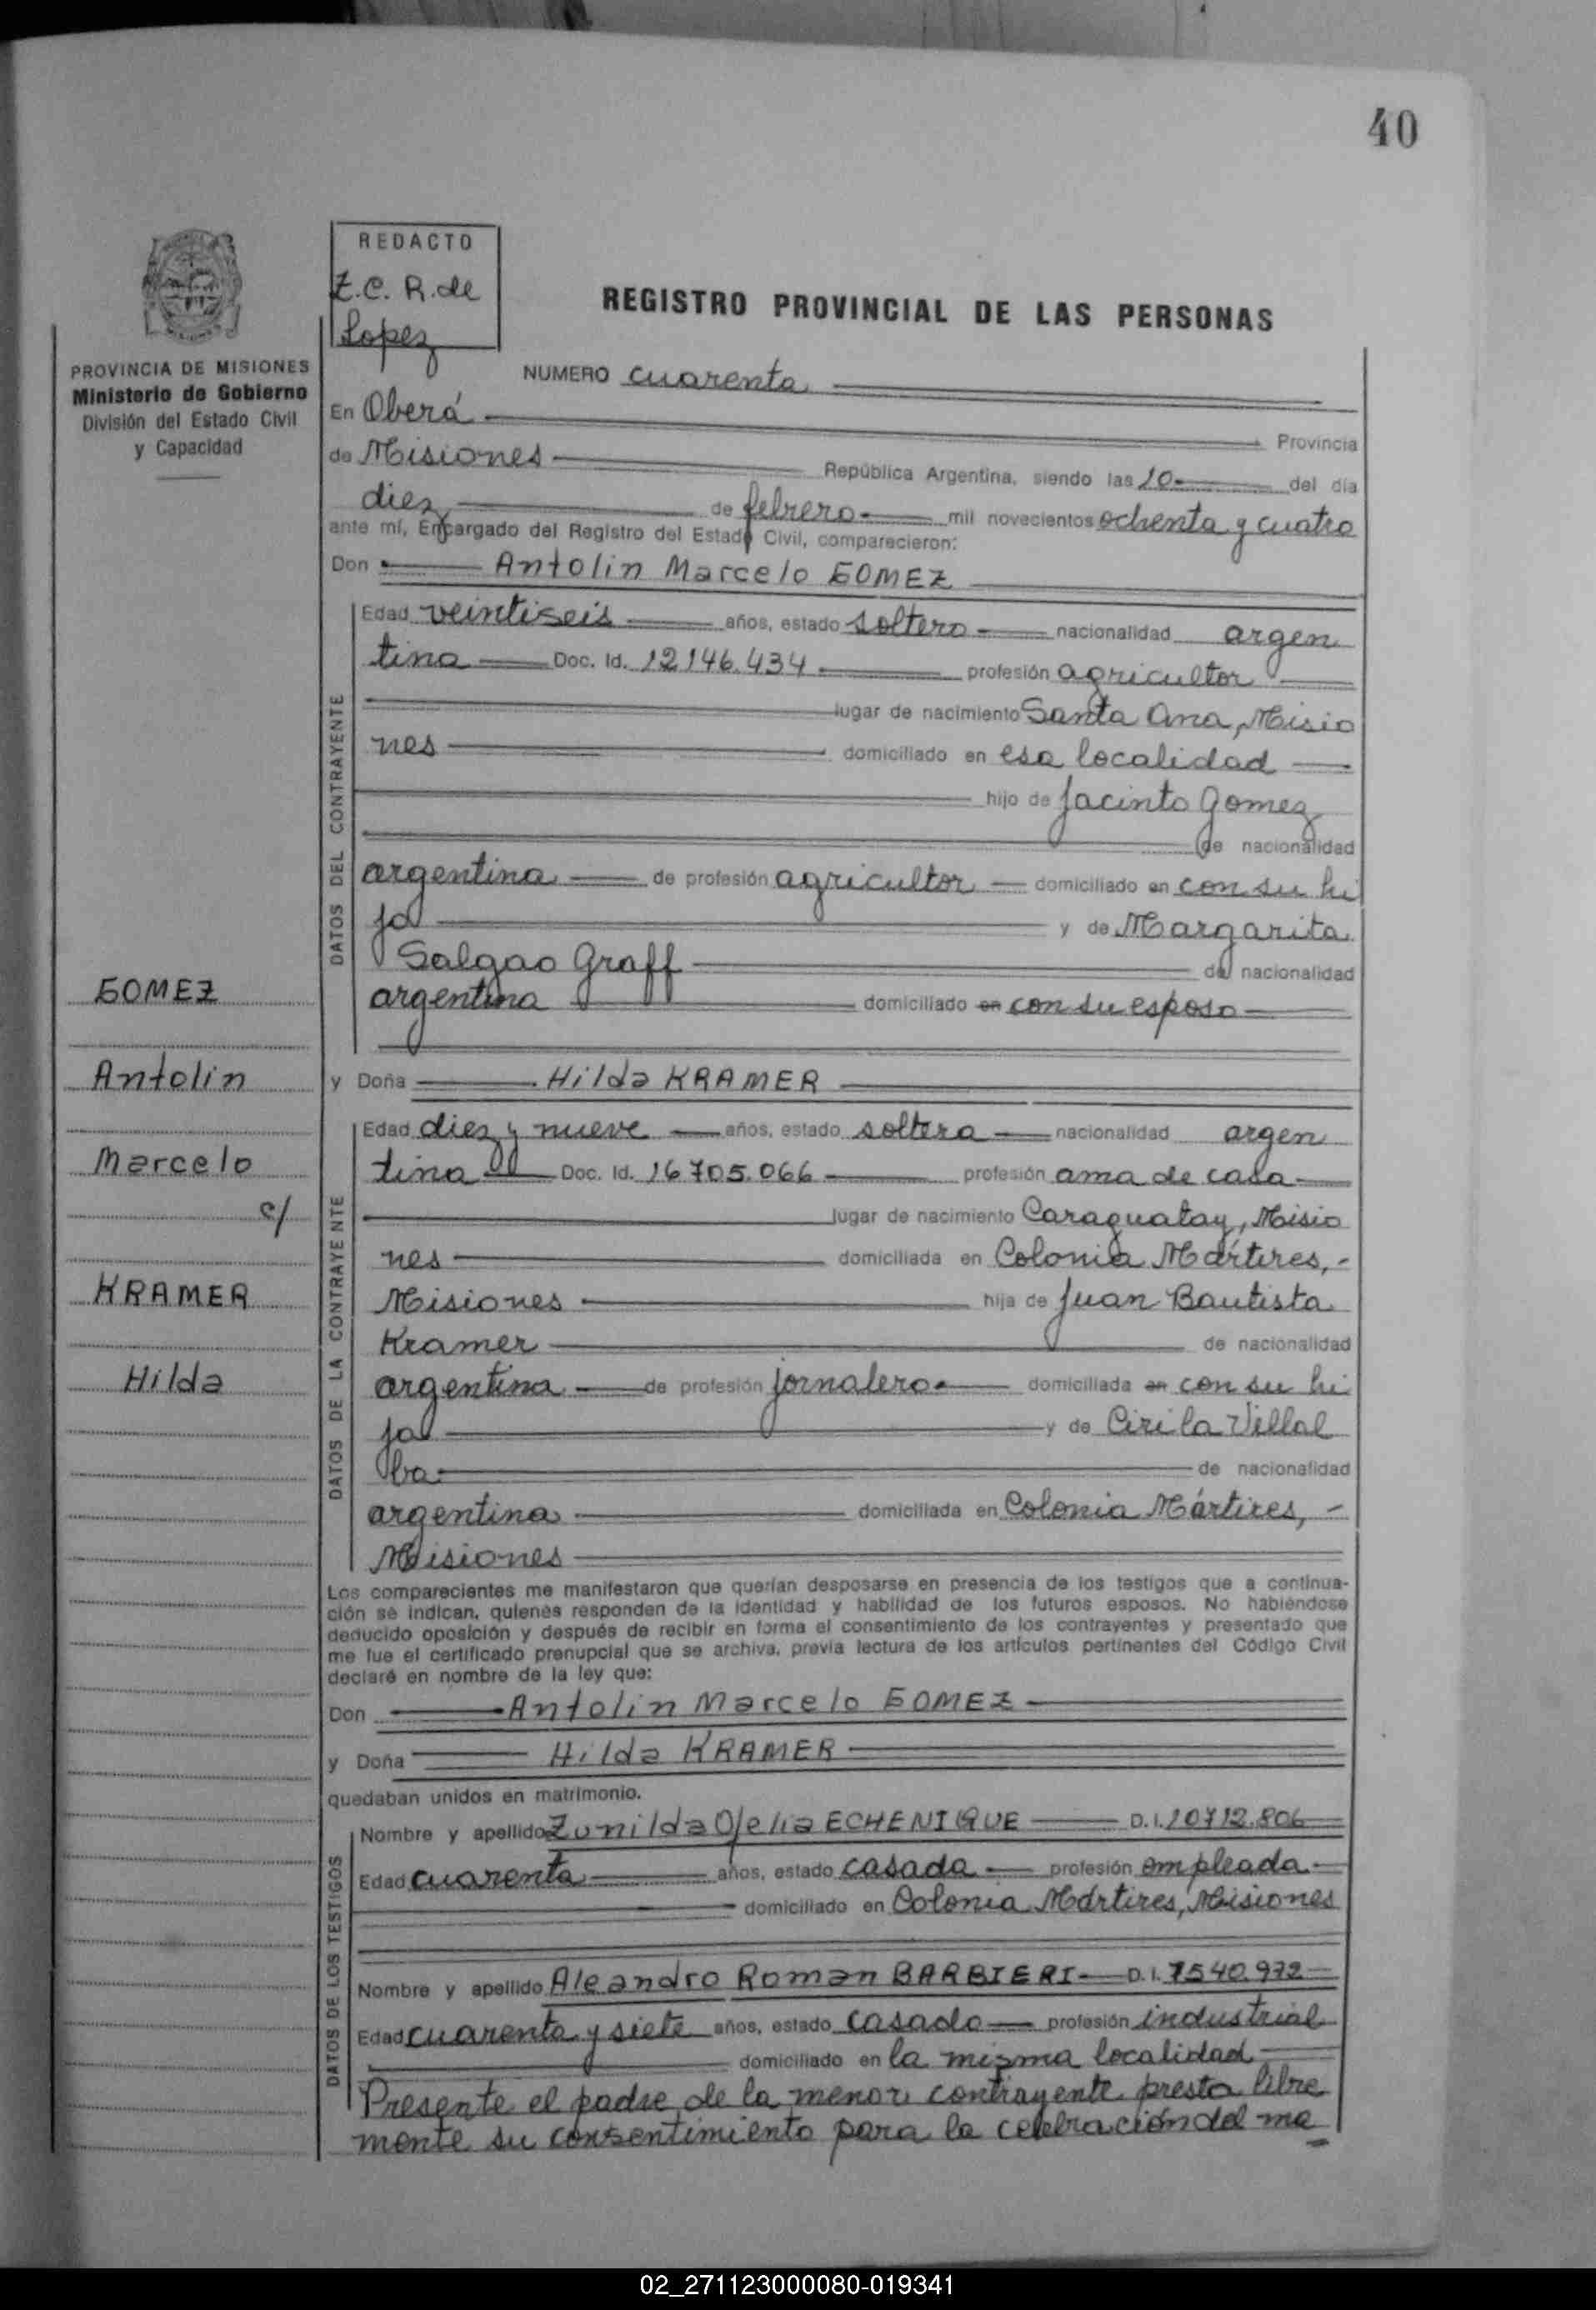 40
REDACTO
Z.C. R. de
Lopez
REGISTRO PROVINCIAL DE LAS PERSONAS
PROVINCIA DE MISIONES
Ministerio de Gobierno
División del Estado Civil
y Capacidad
NUMERO cuarenta
En Oberá Provincia
de Misiones República Argentina, siendo las 10 del día
diez de febrero mil novecientos ochenta y cuatro
ante mí, Encargado del Registro del Estado Civil, comparecieron:
Don Antolin Marcelo GOMEZ
DATOS DEL CONTRAYENTE
Edad veintiseis años, estado soltero nacionalidad argen
tina Doc. Id. 12146.434 profesión agricultor
lugar de nacimiento Santa Ana, Misio
nes domiciliado en esa localidad
hijo de Jacinto Gomez
de nacionalidad
argentina de profesión agricultor domiciliado en con su hi
jo y de Margarita
Salgao Graff de nacionalidad
argentina domiciliado en con su esposo
GOMEZ
Antolin
Marcelo
c/
KRAMER
Hilda
y Doña Hilda KRAMER
DATOS DE LA CONTRAYENTE
Edad diez y nueve años, estado soltera nacionalidad argen
tina Doc. Id. 16705.066 profesión ama de casa
lugar de nacimiento Caraguatay, Misio
nes domiciliada en Colonia Mártires,-
Misiones hija de Juan Bautista
Kramer de nacionalidad
argentina de profesión jornalero domiciliada en con su hi
ja y de Cirila Villal
ba de nacionalidad
argentina domiciliada en Colonia Mártires, -
Misiones
Los comparecientes me manifestaron que querían desposarse en presencia de los testigos que a continua-
ción se indican, quienes responden de la identidad y habilidad de los futuros esposos. No habiéndose
deducido oposición y después de recibir en forma el consentimiento de los contrayentes y presentado que
me fue el certificado prenupcial que se archiva, previa lectura de los artículos pertinentes del Código Civil
declaré en nombre de la ley que:
Don Antolin Marcelo GOMEZ
y Doña Hilda KRAMER
quedaban unidos en matrimonio.
DATOS DE LOS TESTIGOS
Nombre y apellido Zunilda Ofelia ECHENIQUE D.I. 10712.806
Edad cuarenta años, estado casada profesión empleada
domiciliado en Colonia Mártires, Misiones
Nombre y apellido Aleandro Roman BARBIERI D.I. 7540.972
Edad cuarenta y siete años, estado casado profesión industrial
domiciliado en la misma localidad
Presente el padre de la menor contrayente presta libre
mente su consentimiento para la celebración del ma
02_271123000080-019341